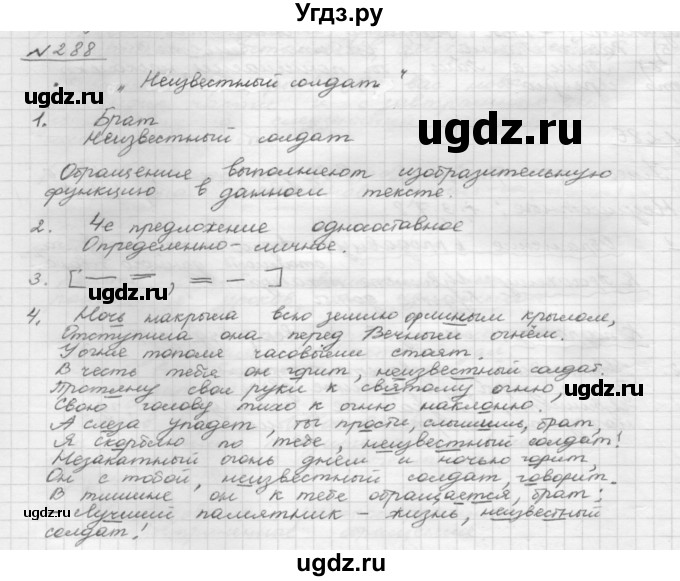 Угдз.ру
№288
„ Неизвестный солдат "
ugdz.ru
1. Брат
ugdz.ru
Неизвестный солдат
Обращения выполняют изобразительную
функцию в данном тексте.
ugdz.ru
2. 4е предложение односоставное
Определенно-личное.
3. [— =, = —]
ugdz.ru
4. Ночь накрыла всю землю орлиным крылом,
Отступила она перед Вечным огнём.
У огня тополя часовыми стоят.
В честь тебя он горит, неизвестный солдат.
Протяну свои руки к святому огню,
ugdz.ru
Свою голову тихо к огню наклоню.
А слеза упадет, ты прости, слышишь, брат,
Я скорблю по тебе, неизвестный солдат!
Незакатный огонь днём и ночью горит,
Он с тобой, неизвестный солдат, говорит.
В тишине он к тебе обращается, брат:
ugdz.ru
Лучший памятник - жизнь, неизвестный
ugdz.ru
солдат!
ugdz.ru